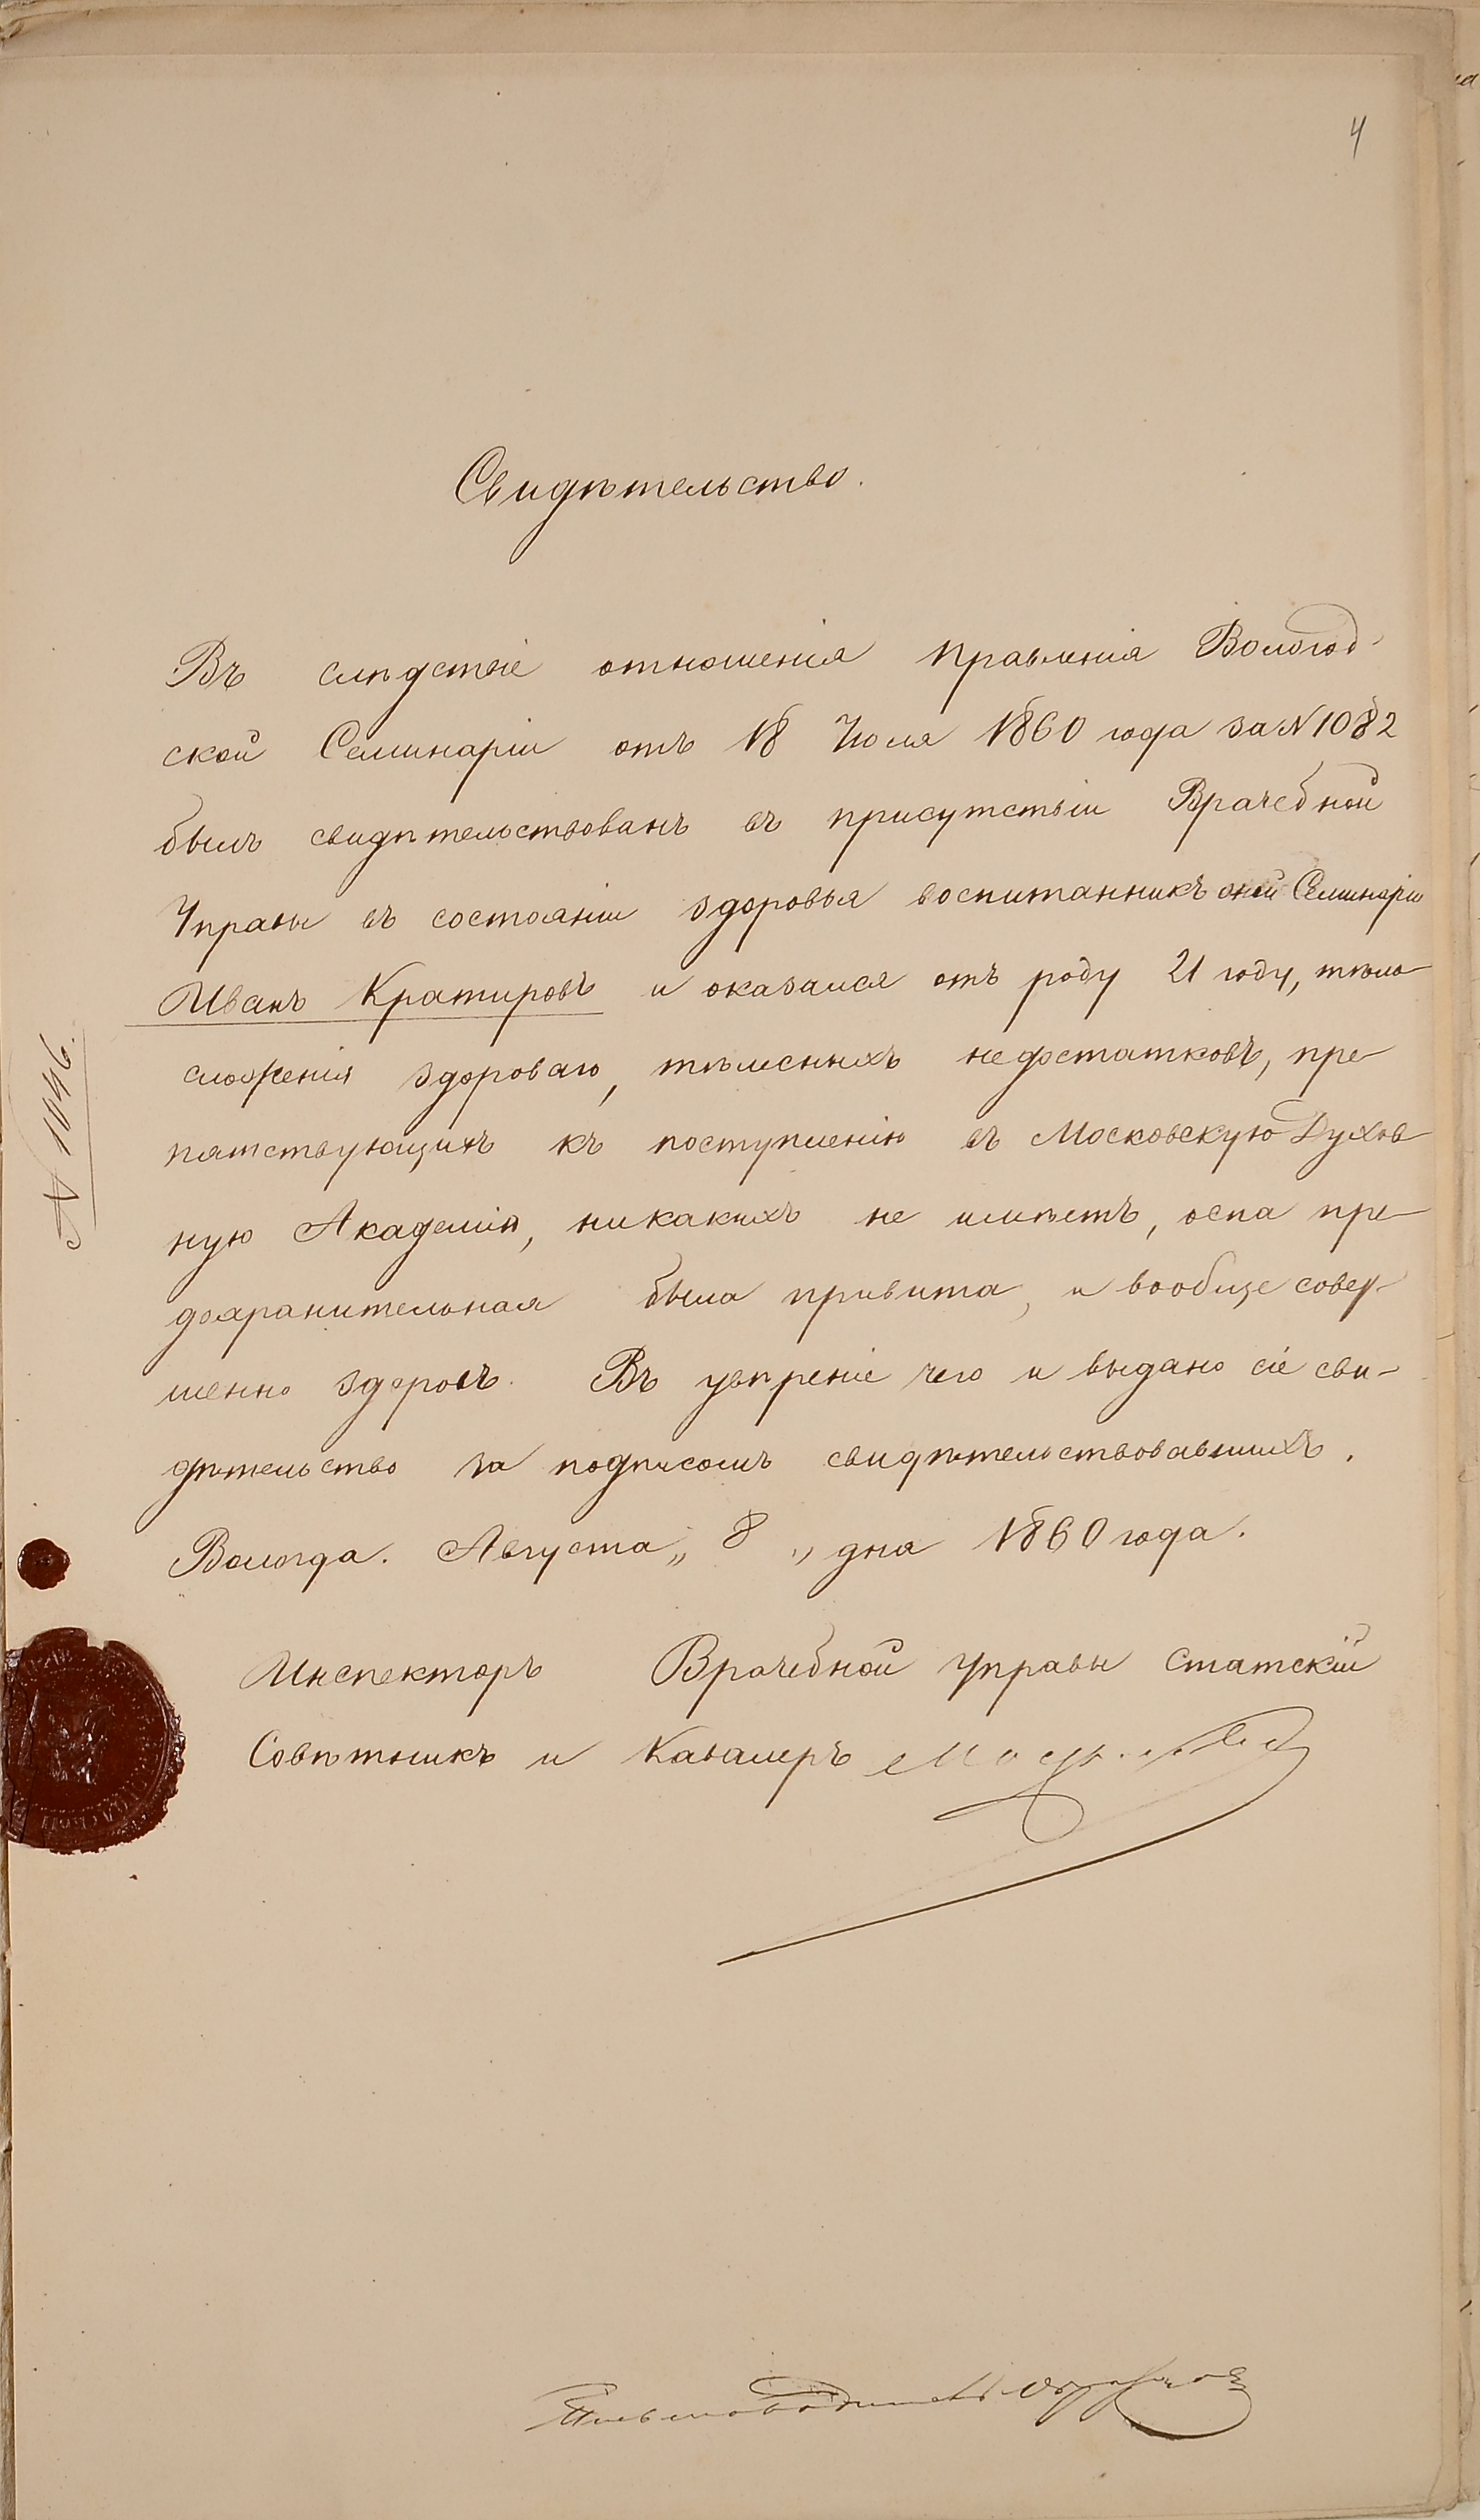 4
Свидѣтельство.
Въ слѣдствіе отношенія Правленія Вологод-
ской Семинаріи отъ 18 Іюля 1860 года за N 1082
былъ свидѣтельствованъ въ присутствіи Врачебной
Управы въ состояніи здоровья воспитанникъ оной Семинаріи
Иванъ Кратировъ и оказался отъ роду 21 году, тѣло-
сложенія здороваго, тѣлесныхъ недостатковъ, пре-
пятствующихъ къ поступленію въ Московскую Духов-
ную Академію, никакихъ не имѣетъ, оспа пре-
дохранительная была привита, и вообще совер-
шенно здоровъ. Въ увѣреніе чего и выдано сіе сви-
дѣтельство за подписомъ свидѣтельствовавшихъ.
Вологда. Августа „ 8 „ дня 1860 года.
Инспекторъ Врачебной Управы Статскій
Совѣтникъ и Кавалеръ
Письмоводитель
N 1046.